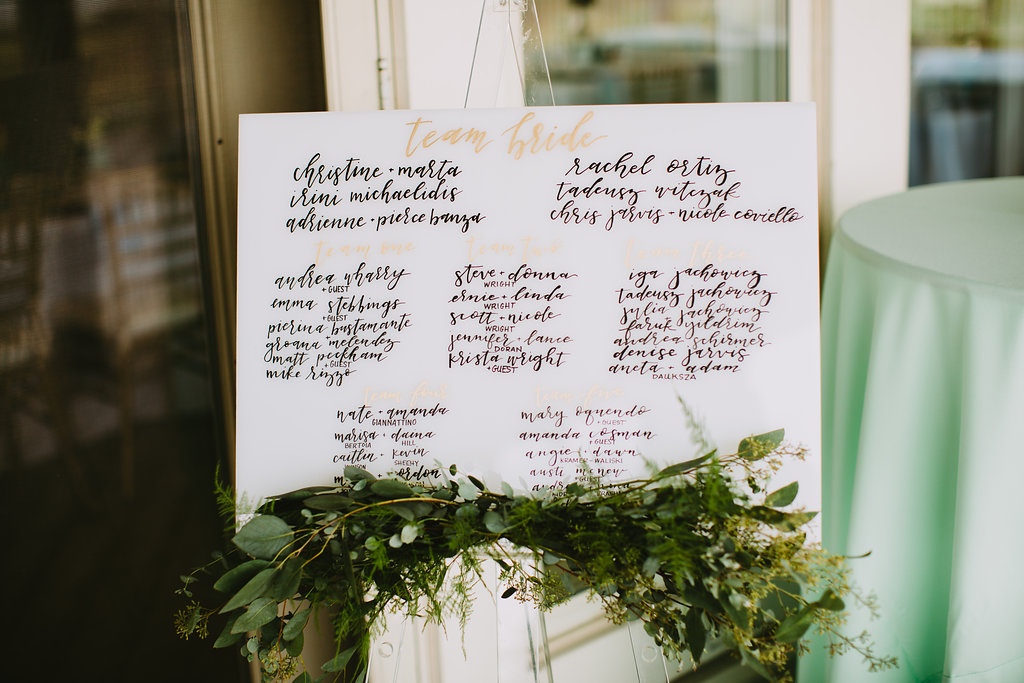 team bride
christine + marta
irini michaelidis
adrienne + pierce banza
rachel ortiz
tadeusz witczak
chris jarvis + nicole coviello
team one
andrea wharry
+ GUEST
emma stebbings
+ GUEST
pierina bustamante
groana melendez
matt peckham
+ GUEST
mike rizzo
team two
steve + donna
WRIGHT
ernie + linda
WRIGHT
scott + nicole
WRIGHT
jennifer + lance
DORAN
krista wright
+ GUEST
team three
iga jachowicz
tadeusz jachowicz
julia jachowicz
faruk yildrim
andrea schirmer
denise jarvis
aneta + adam
DAUKSZA
team four
nate + amanda
GIANNATTINO
marisa + daena
BERTOIA HILL
caitlin + kevin
SHEEHY
team five
mary oquendo
+ GUEST
amanda cosman
+ GUEST
angie + dawn
KRAMER-WALISKI
mcnew
+ GUEST